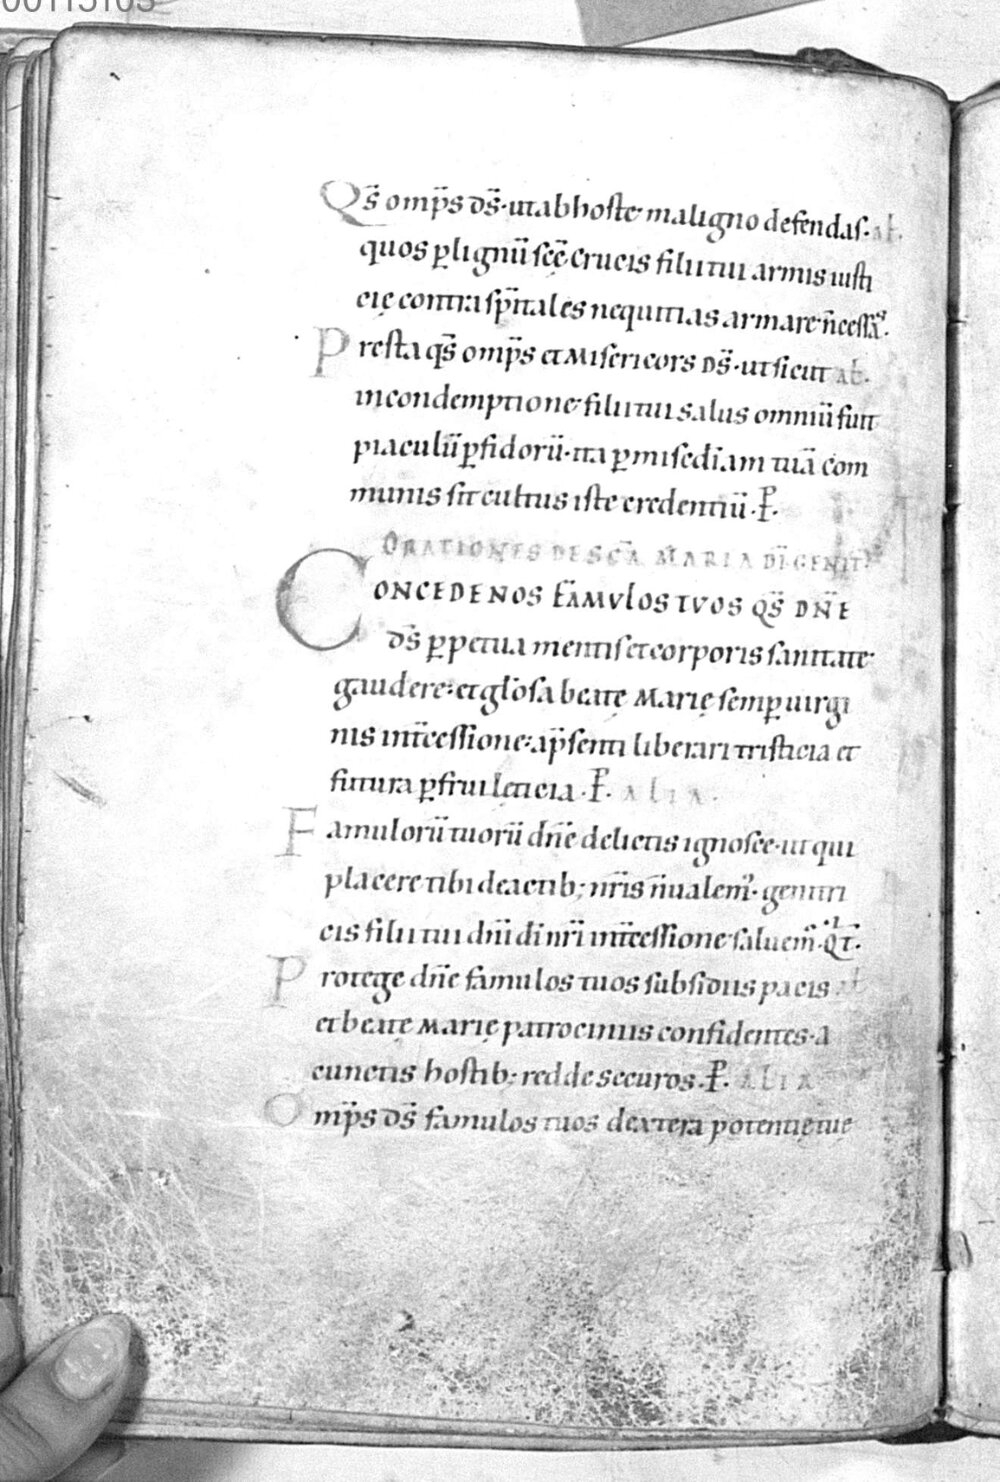 00115103
Qs̄ om̄ps ds̄· ut ab hoste maligno defendas· al.
quos ꝑ lignū scē crucis filii tui armis iusti
cię contra sp̄itales nequitias armare
Presta qs̄ om̄ps et misericors ds̄· ut sicut al.
in condemptione filii tui salus omniū fuit
piaculū ꝑfidorū· ita ꝑ misc̄diam tuā com
munis sit cultus iste credentiū· P̄.
ORATIONES DE SCĀ MARIA DĪ GENIT
CONCEDE NOS FAMVLOS TVOS QS̄ DN̄E
ds̄ ꝑpetua mentis et corporis sanitate
gaudere· et gl̄osa beatę Marię semꝑ uirgi
nis int̄cessione· a p̄senti liberari tristicia et
futura ꝑfrui leticia· P̄. ALIA·
Famulorū tuorū dn̄e delictis ignosce· ut qui
placere tibi de actib; nr̄is n̄ ualem̄· genitri
cis filii tui dn̄i dī nr̄i int̄cessione saluem̄· Q̄T·
Protege dn̄e famulos tuos subsidiis pacis al
et beatę Marię patrociniis confidentes· a
cunctis hostib; redde securos· P̄. ALIA
Om̄ps ds̄ famulos tuos dextera potentię tue